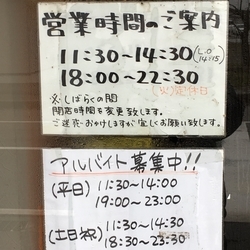 営業時間のご案内
11:30~14:30(L.O 14:15)
18:00~22:30
(火)定休日
※しばらくの間
閉店時間を変更致します。
ご迷惑おかけしますが宜しくお願い致します。
アルバイト募集中!!
(平日) 11:30~14:00
19:00~23:00
(土日祝) 11:30~14:30
18:30~23:30